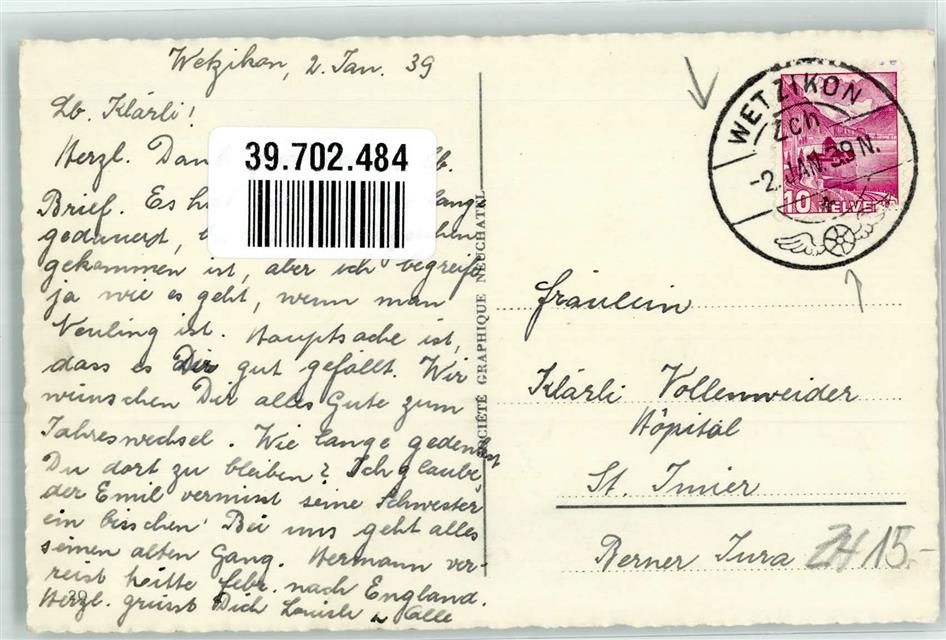 Wetzikon, 2. Jan. 39
Lb. Klärli!
Herzl. Dan lb.
Brief. Es h lange
gedauert,
gekommen ist, aber ich begreife
ja wie es geht, wenn man
Neuling ist. Hauptsache ist,
dass es Dir gut gefällt. Wir
wünschen Dir alles Gute zum
Jahreswechsel. Wie lange gedenkst
Du dort zu bleiben? Ich glaube,
der Emil vermisst seine Schwester
ein bisschen! Bei uns geht alles
seinen alten Gang. Hermann ver-
reist Mitte Febr. nach England.
Herzl. grüsst Dich Louisle
39.702.484
SOCIÉTÉ GRAPHIQUE NEUCHATEL
WETZIKON
Zch
-2. JAN. 39 N.
10 HELVETIA
Fräulein
Klärli Vollenweider
Hôpital
St. Imier
Berner Jura
ZH 15.-
39